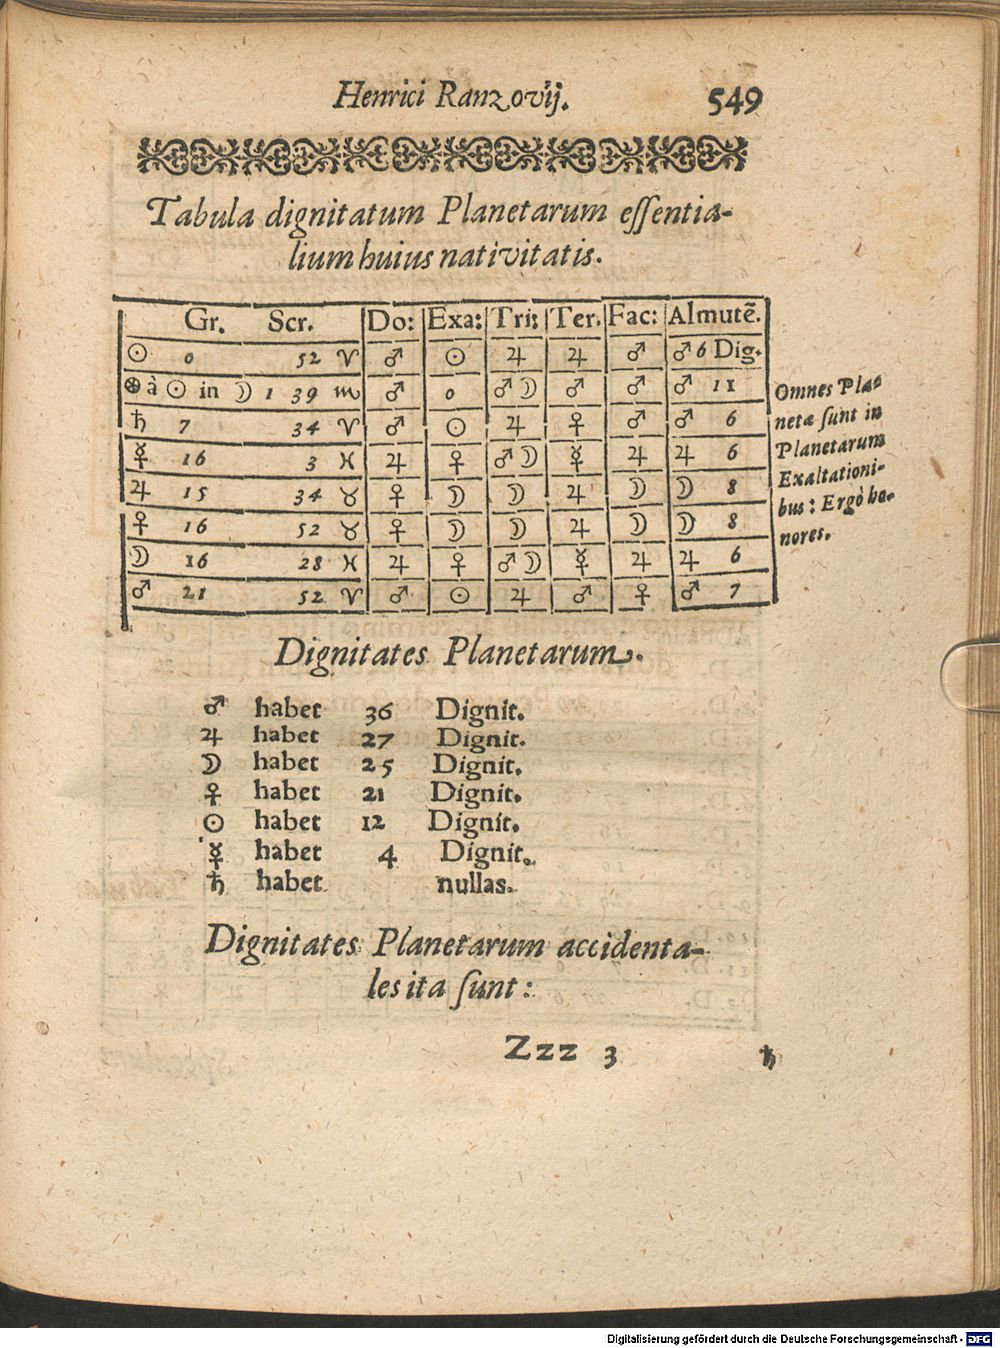 Henrici Ranzovij. 549
Tabula dignitatum Planetarum eſſentia-
lium huius nativitatis.
Gr. Scr. Do: Exa: Tri: Ter. Fac: Almutẽ.
☉ 0 52 ♈ ♂ ☉ ♃ ♃ ♂ ♂ 6 Dig.
⊕ à ☉ in ☽ 1 39 ♏ ♂ 0 ♂☽ ♂ ♂ ♂ 11
♄ 7 34 ♈ ♂ ☉ ♃ ♀ ♂ ♂ 6
☿ 16 3 ♓ ♃ ♀ ♂☽ ☿ ♃ ♃ 6
♃ 15 34 ♉ ♀ ☽ ☽ ♃ ☽ ☽ 8
♀ 16 52 ♉ ♀ ☽ ☽ ♃ ☽ ☽ 8
☽ 16 28 ♓ ♃ ♀ ♂☽ ☿ ♃ ♃ 6
♂ 21 52 ♈ ♂ ☉ ♃ ♂ ♀ ♂ 7
Omnes Pla-
netæ ſunt in
Planetarum
Exaltationi-
bus: Ergò ho-
nores.
Dignitates Planetarum.
♂ habet 36 Dignit.
♃ habet 27 Dignit.
☽ habet 25 Dignit.
♀ habet 21 Dignit.
☉ habet 12 Dignit.
☿ habet 4 Dignit.
♄ habet nullas.
Dignitates Planetarum accidenta-
les ita ſunt:
Zzz 3 ♄
Digitalisierung gefördert durch die Deutsche Forschungsgemeinschaft - DFG